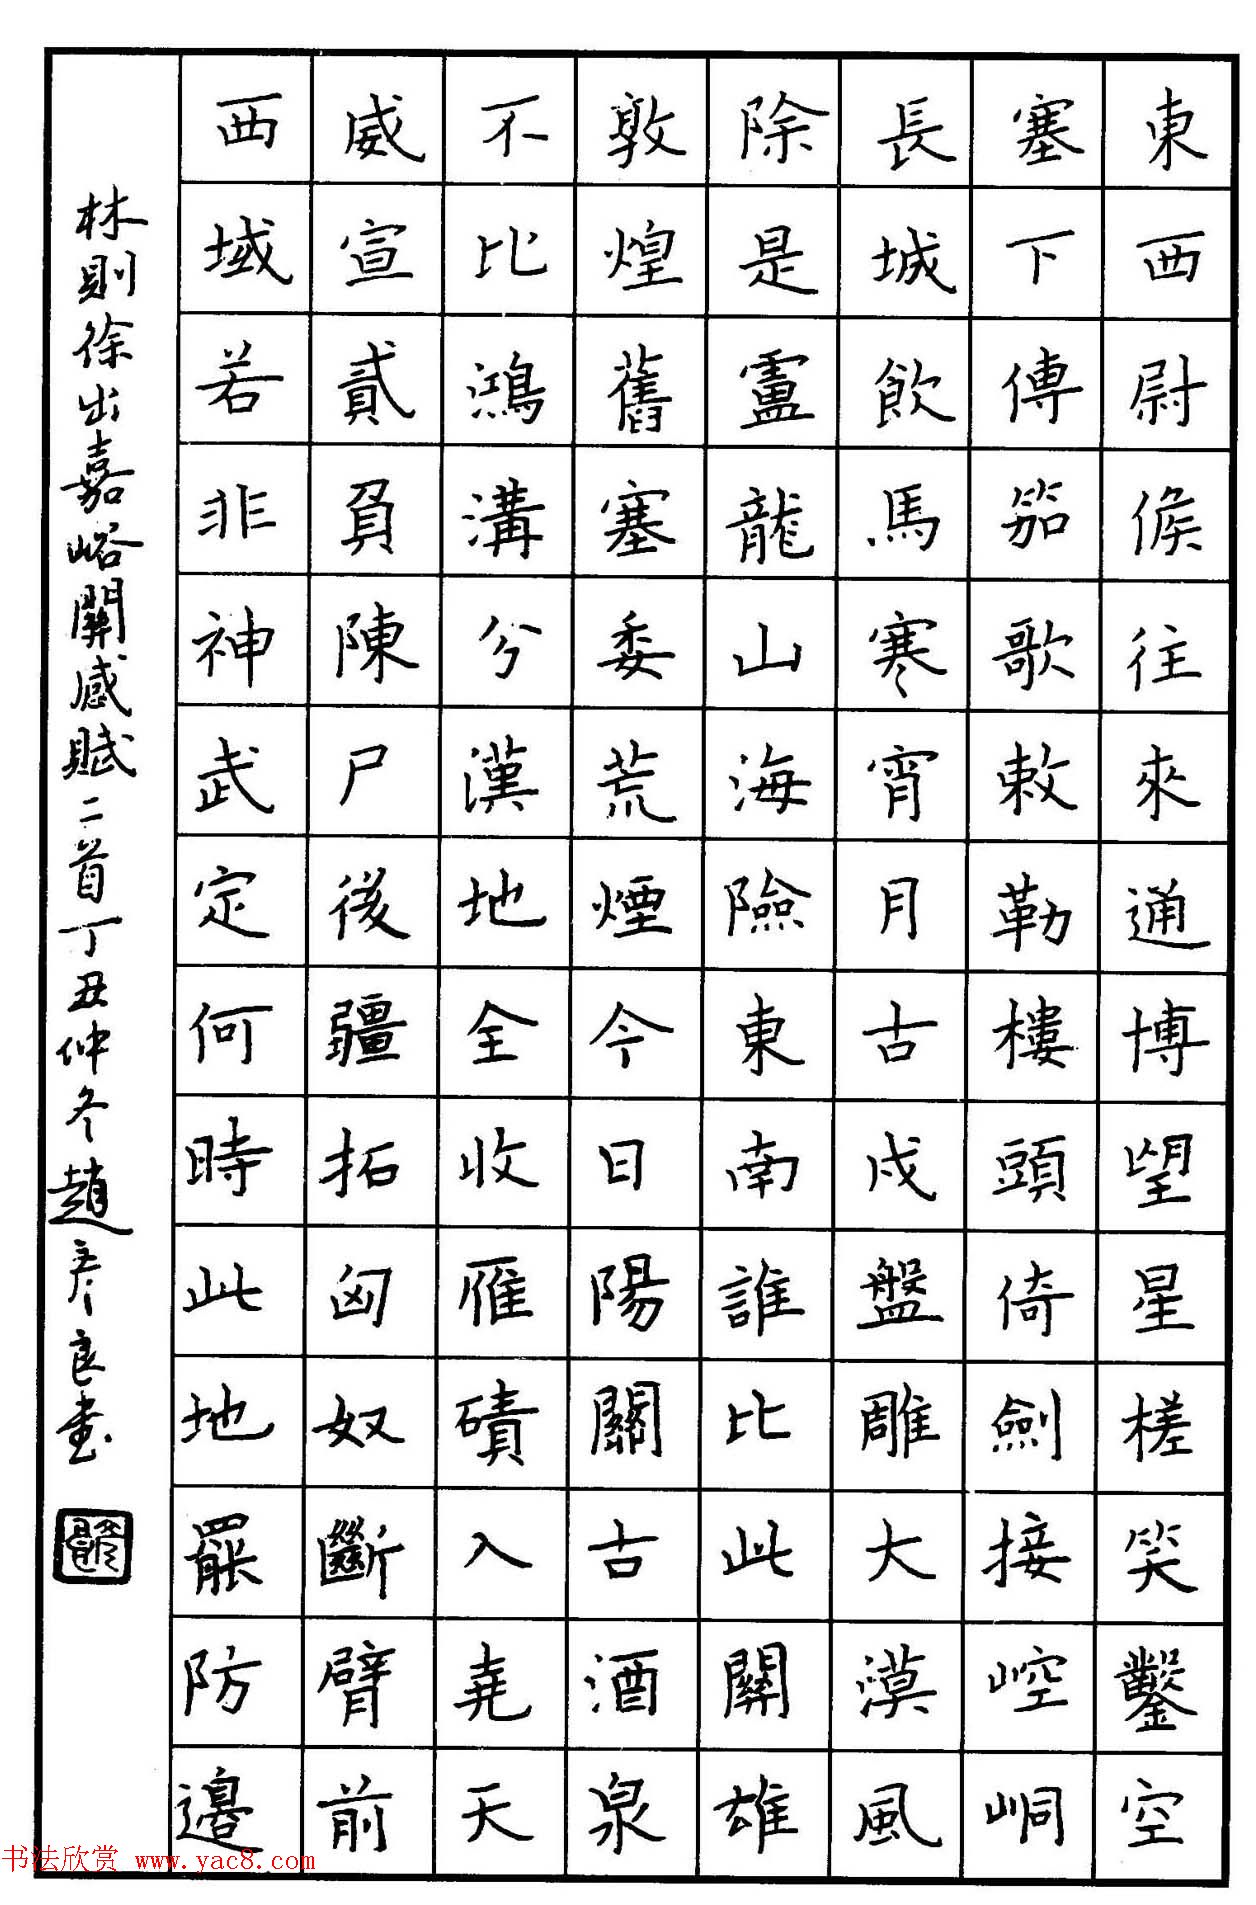 東西尉候往來通博望星槎笑鑿空
塞下傳笳歌敕勒樓頭倚劍接崆峒
長城飲馬寒宵月古戍盤雕大漠風
除是盧龍山海險東南誰比此關雄
敦煌舊塞委荒煙今日陽關古酒泉
不比鴻溝兮漢地全收雁磧入堯天
威宣貳負陳尸後疆拓匈奴斷臂前
西域若非神武定何時此地罷防邊
林則徐出嘉峪關感賦二首丁丑仲冬趙彥良書
书法欣赏 www.yac8.com